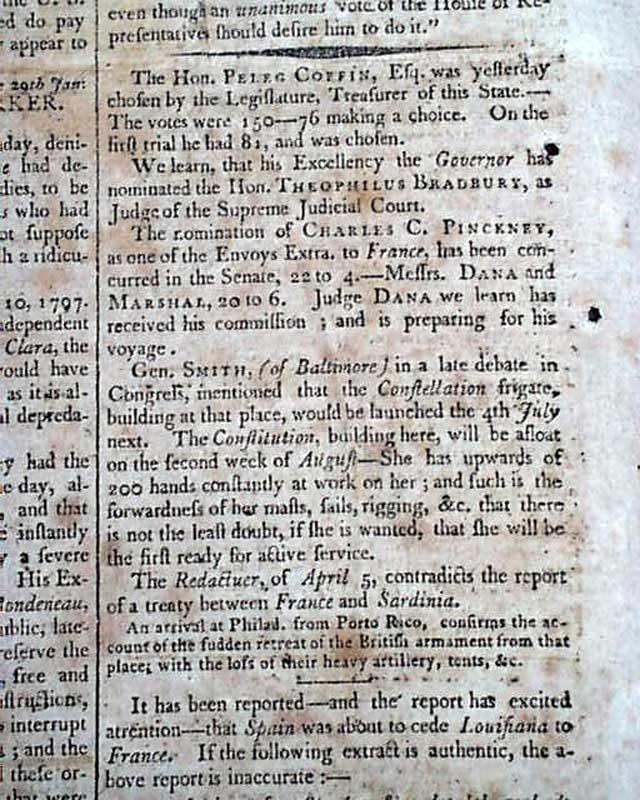 ed do pay
appear to
29th Jan:
KER.
day, deni-
e had de-
dies, to be
s who had
ot suppose
h a ridicu-
10, 1797.
dependent
Clara, the
ould have
as it is al-
al depreda-
y had the
e day, al-
, and that
e inſtantly
y a ſevere
His Ex-
ondeneau,
ublic; late-
reſerve the
, free and
ſtructions,
interrupt
s ; and the
theſe or-
that were
even though an unanimous vote of the Houſe of Re-
preſentatives ſhould deſire him to do it."
The Hon. PELEG COFFIN, Eſq. was yeſterday
choſen by the Legiſlature, Treaſurer of this State.—
The votes were 150—76 making a choice. On the
firſt trial he had 81, and was choſen.
We learn, that his Excellency the Governor has
nominated the Hon. THEOPHILUS BRADBURY, as
Judge of the Supreme Judicial Court.
The nomination of CHARLES C. PINCKNEY,
as one of the Envoys Extra. to France, has been con-
curred in the Senate, 22 to 4.—Meſſrs. DANA and
MARSHAL, 20 to 6. Judge DANA we learn has
received his commiſſion ; and is preparing for his
voyage.
Gen. SMITH, (of Baltimore) in a late debate in
Congreſs, mentioned that the Conſtellation frigate,
building at that place, would be launched the 4th July
next. The Conſtitution, building here, will be afloat
on the ſecond week of Auguſt—She has upwards of
200 hands conſtantly at work on her ; and ſuch is the
forwardneſs of her maſts, ſails, rigging, &c. that there
is not the leaſt doubt, if ſhe is wanted, that ſhe will be
the firſt ready for active ſervice.
The Redactuer, of April 5, contradicts the report
of a treaty between France and Sardinia.
An arrival at Philad. from Porto Rico, confirms the ac-
count of the ſudden retreat of the Britiſh armament from that
place; with the loſs of their heavy artillery, tents, &c.
It has been reported—and the report has excited
attention—that Spain was about to cede Louiſiana to
France. If the following extract is authentic, the a-
bove report is inaccurate :—